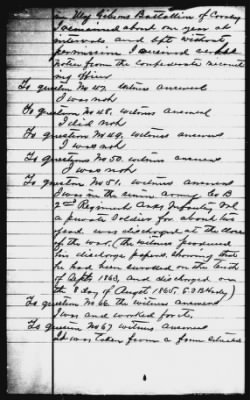 in Maj Gibsons Battallion of Cavalry
I remained about on year at
intervals and left without
permission I received several
notes from the confederate recruit
ing officer
To question No 47. witness answered
I was not
To question No 48. witness answered
I did not
To question No 49. witness answers
I was not
To question No 50. witness answers
I was not
To question No 51. witness answers
I was in the union army Co B
2nd Regiment Arks Infantry Vol
a private Soldier for about two
years was discharged at the close
of the war. (The witness produced
his discharge papers, showing that
he had been enrolled on the tenth
of Sept 1863, and discharged on
the 8 day of August 1865.
To question No 66 the witness answers
I was and worked for it.
To question No 67 witness answers
It was taken from a farm